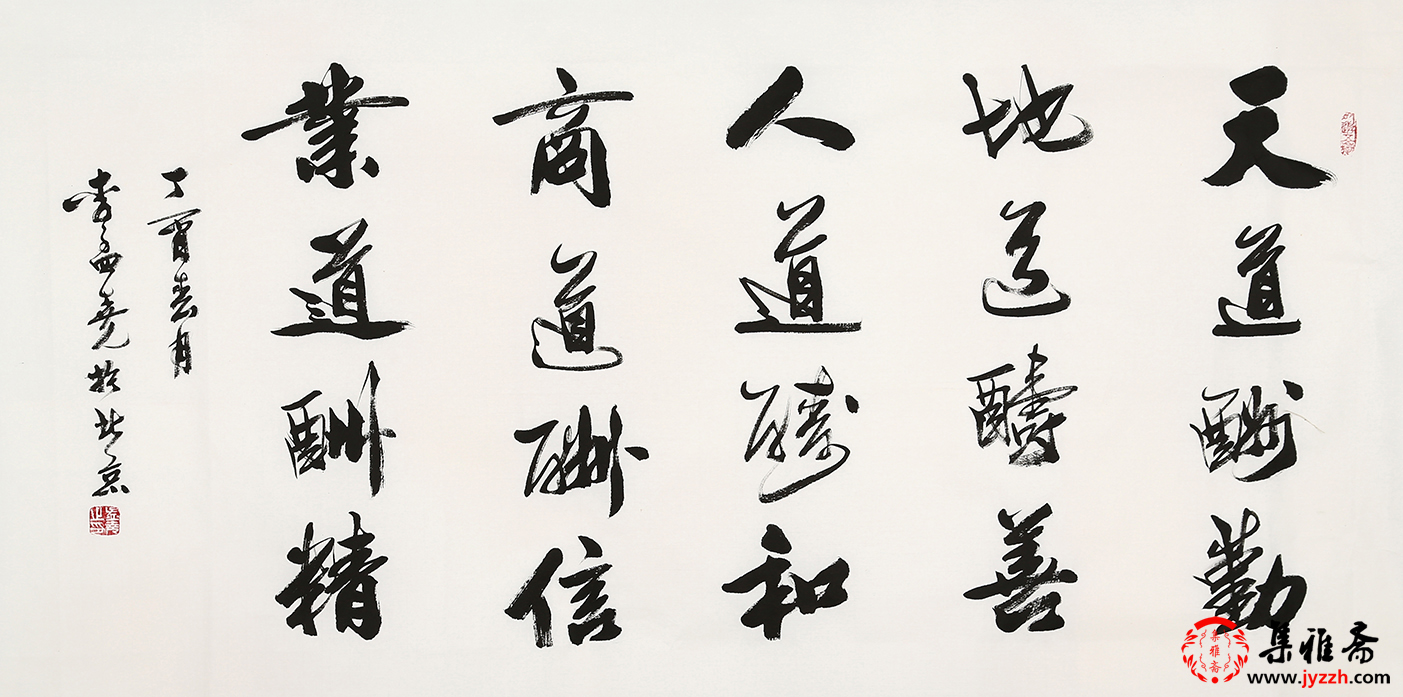 天道酬勤
地道酬善
人道酬和
商道酬信
業道酬精
丁酉春月
李孟尧於北京
集雅斋
集雅斋
www.jyzzh.com